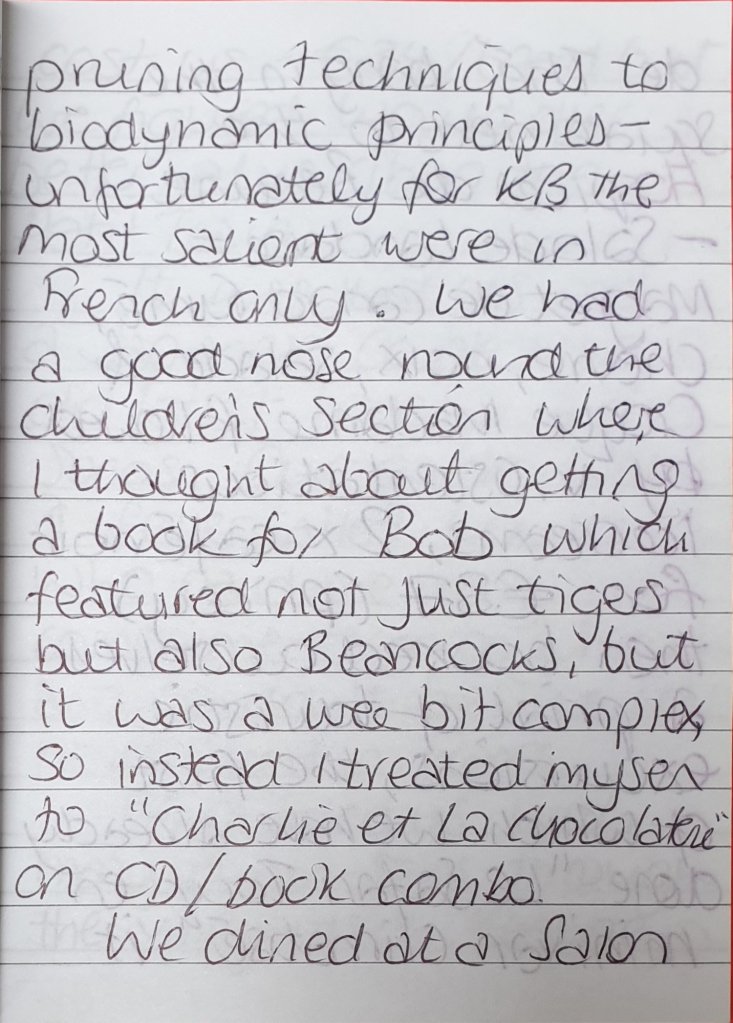 pruning techniques to
biodynamic principles-
unfortunately for KB the
most salient were in
French only. We had
a good nose round the
children's section where
I thought about getting
a book for Bob which
featured not just tigers
but also Beancocks, but
it was a wee bit complex,
so instead I treated mysen
to "Charlie et La Chocolaterie"
on CD/book combo.
We dined at a Salon